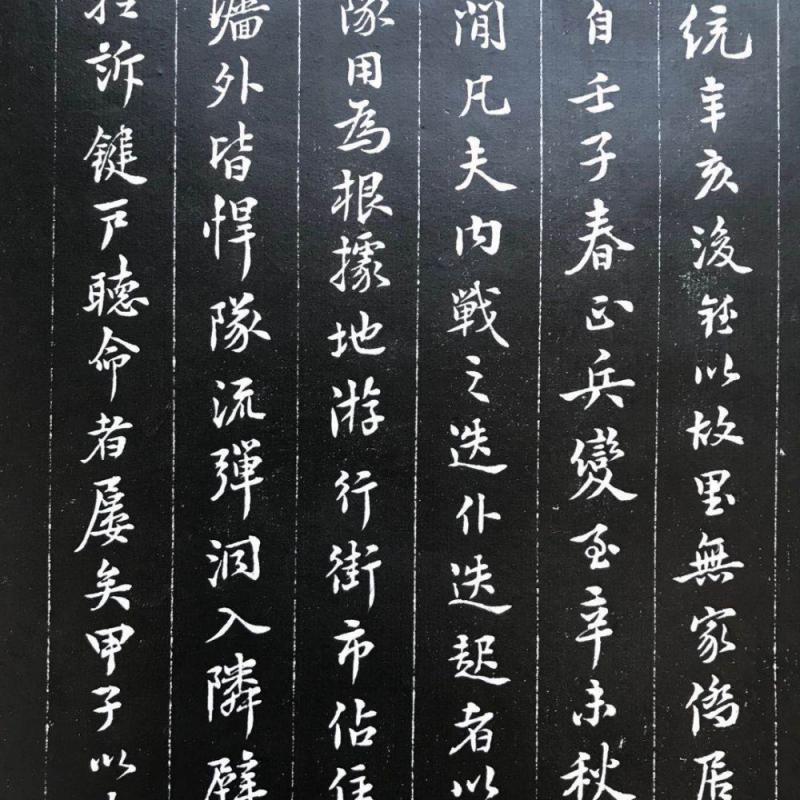 統辛亥後鈺以故里無家僑居
自壬子春正兵變至辛未秋
閒凡夫内戰之迭仆迭起者以
隊用為根據地游行街市佔住
墻外皆悍隊流彈洞入隣壁
控訴鍵戶聽命者屢矣甲子以